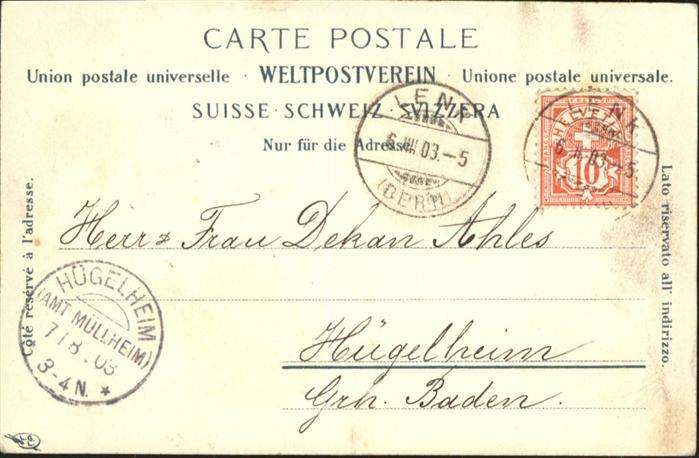 CARTE POSTALE
Union postale universelle · WELTPOSTVEREIN · Unione postale universale.
SUISSE · SCHWEIZ · SVIZZERA
Nur für die Adresse
LENK
6.VIII.03.-5
(BERN)
LENK
HELVETIA
10
6. 03.-5
Côté réservé à l'adresse.
Lato riservato all' indirizzo.
Herr & Frau Dekan Ahles
Hügelheim
Grh. Baden.
HÜGELHEIM
(AMT MÜLLHEIM)
7/8.03
3-4 N. *